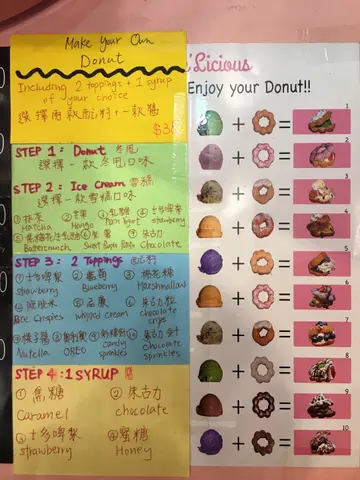 Make Your Own
Donut
Including 2 toppings + 1 syrup
of your choice
選擇兩款配料+一款醬
$3
STEP 1: Donut 冬甩
選擇一款冬甩口味
STEP 2: Ice Cream 雪糕
選擇一款雪糕口味
① 抹茶 ② 芒果 ③ ④ 士多啤梨
Matcha Mango strawberry
⑤ ⑥ ⑦ 朱古力
Butterscrunch Sweet Chocolate
STEP 3: 2 Toppings 配料
① 士多啤梨 ② 藍莓 ③ 棉花糖
strawberry Blueberry Marshmallows
④ 脆脆米 ⑤ 忌廉 ⑥ 朱古力粒
Rice Crispies whipped cream chocolate
crisps
⑦ 榛子醬 ⑧ 奧利奧 ⑨ ⑩ 朱古力針
Nutella OREO candy Chocolate
sprinkles sprinkles
STEP 4: 1 SYRUP 醬
① 焦糖 ② 朱古力
Caramel chocolate
③ 士多啤梨 ④ 蜜糖
strawberry Honey
'Licious
Enjoy your Donut!!
+ = 1
+ = 2
+ = 3
+ = 4
+ = 5
+ = 6
+ = 7
+ = 8
+ = 9
+ = 10